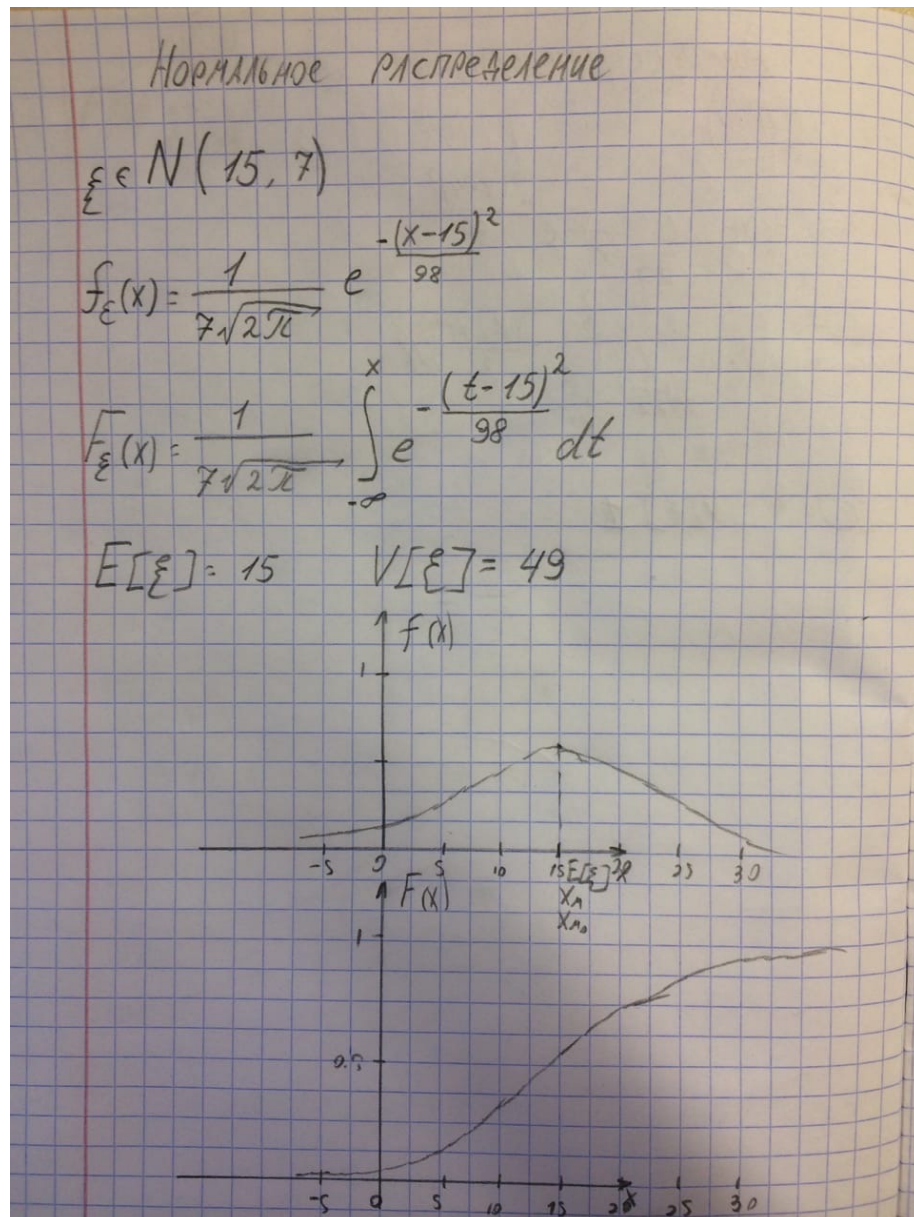 Нормальное распределение
ξ ∈ N(15, 7)
f_ξ(x) = 1/(7√(2π)) e^(-(x-15)²/98)
F_ξ(x) = 1/(7√(2π)) ∫_{-∞}^{x} e^(-(t-15)²/98) dt
E[ξ] = 15 V[ξ] = 49
f(x)
1
-5 0 5 10 15 E[ξ] 25 30
F(x) x_м
x_мо
1
0.5
-5 0 5 10 15 20 x 25 30